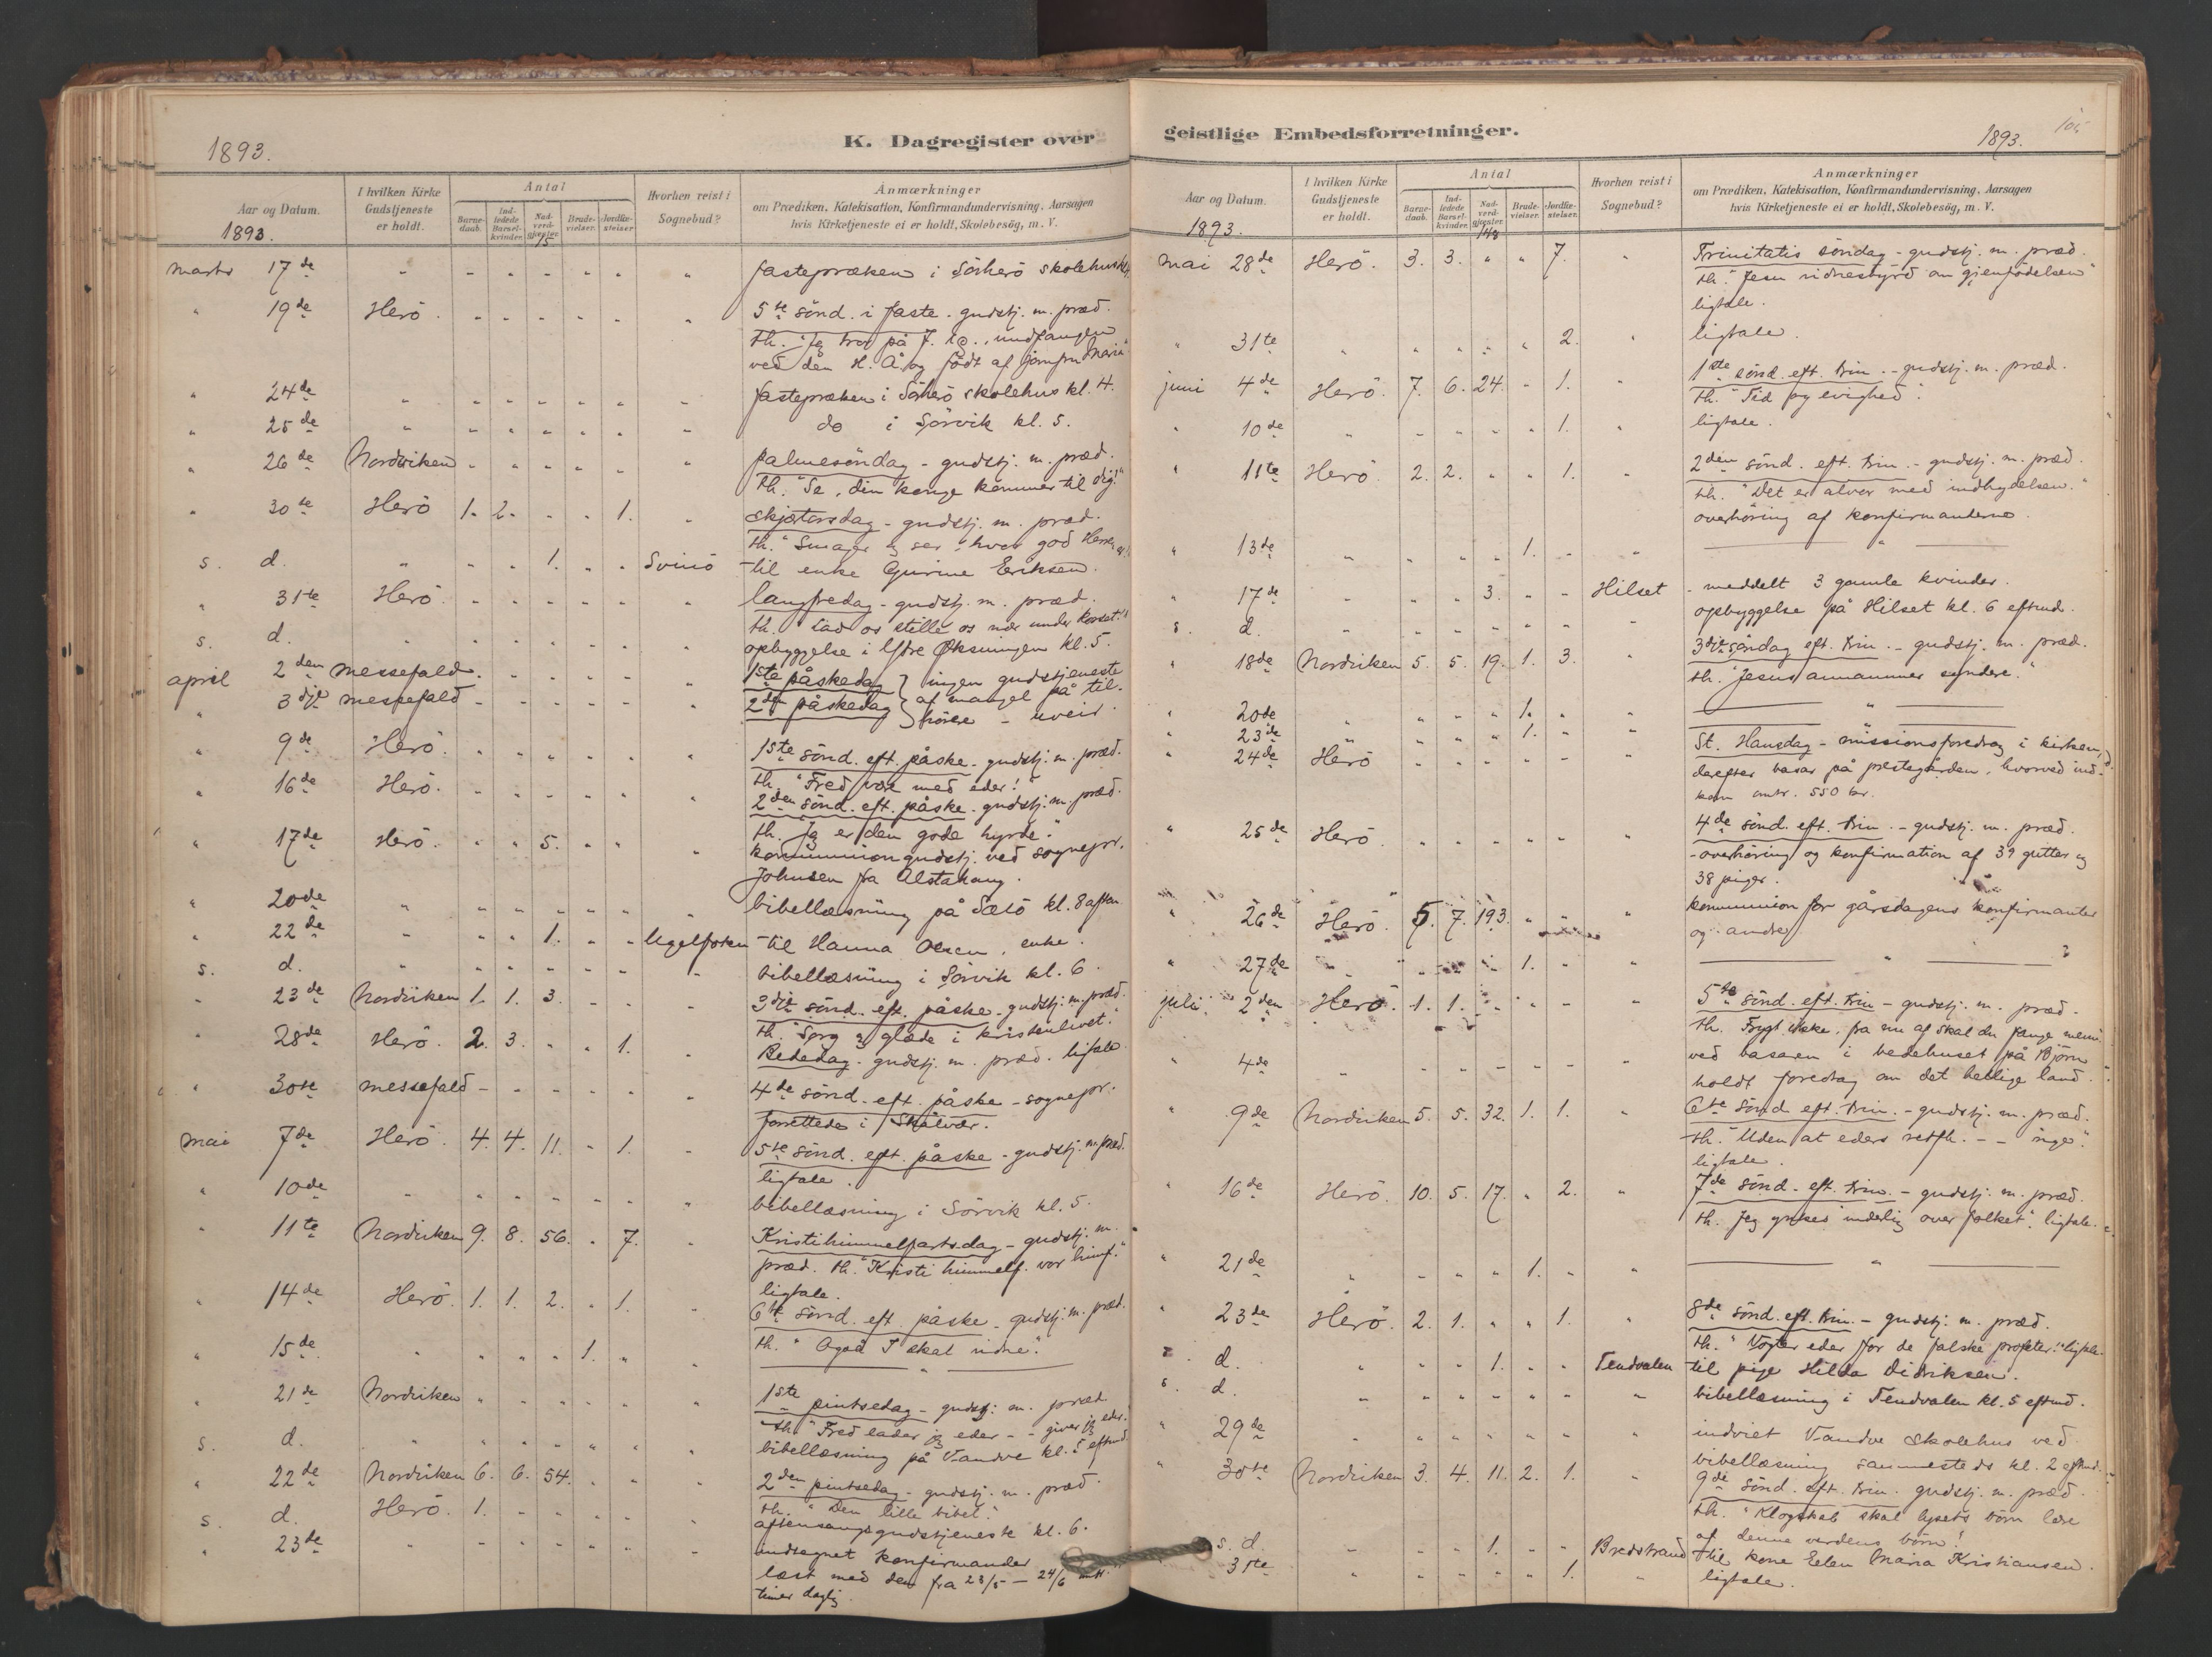 1893.
K. Dagregister over
Aar og Datum.
I hvilken Kirke Gudstjeneste er holdt.
Antal
Barnedaab.
Indledede Barselkvinder.
Nadverdgjester.
Brudevielser.
Jordfæstelser.
Hvorhen reist i Sognebud?
Anmærkninger
om Prædiken, Katekisation, Konfirmandundervisning, Aarsagen
hvis Kirketjeneste ei er holdt, Skolebesög, m. V.
1893. 15
marts 17de " - - - - - - " fastepræken i Sörherö skolehus
" 19de Herö. - - - - - " 5te sönd. i faste - gudstj. m. præd.
th. "Jeg tror på J. undfangen
ved den H. Å. og födt af jomfru Maria"
" 24de " - - - - - - fastepræken i Sörherö skolehus kl. 4.
" 25de " - - - - - - do i Sörvik kl. 5.
" 26de Nordviken - - - - - " palmesöndag - gudstj. m. præd.
th. "Se, din konge kommer til dig!"
" 30te Herö 1. 2. - - 1. " skjærtorsdag - gudstj. m. præd.
th. "Smager og ser, hvor god Herren er."
s. d. " - - 1. - - Svinö til enke Gurine Eriksen.
" 31te Herö. - - - - - " langfredag - gudstj. m. præd.
th. "Lad os stille os nær under korset."
s. d. " - - - - - " opbyggelse i Ytre Öksningen kl. 5.
april 2den messefald. - - - - - " 1ste påskedag } ingen gudstjeneste
" 3dje messefald - - - - - " 2den påskedag } af mangel på til-
hörere - uveir.
" 9de Herö. - - - - - " 1ste sönd. eft. påske - gudstj. m. præd.
th. "Fred være med eder!"
" 16de Herö. - - - - - " 2den sönd. eft. påske - gudstj. m. præd.
th. "Jeg er den gode hyrde."
" 17de Herö. - - 5. - - " kommuniongudstj. ved sognepr.
Johnsen fra Alstahaug.
" 20de " - - - - - " bibellæsning på Sælö kl. 8 aften
" 22de " - - 1. - - til Hanna Olsen, enke.
s. d. " - - - - - " bibellæsning i Sörvik kl. 6.
" 23de Nordviken 1. 1. 3. - - - 3dje sönd. eft. påske - gudstj. m. præd.
th. "Sorg og glæde i kristenlivet."
" 28de Herö. 2. 3. " " 1. " Bededag - gudstj. m. præd. ligtale
" 30te messefald - - - - - " 4de sönd. eft. påske - sognepr.
forrettede i Skålvær.
mai 7de Herö. 4. 4. 11. - 1. - 5te sönd. eft. påske - gudstj. m. præd.
ligtale.
" 10de " " " " - - " bibellæsning i Sörvik kl. 5.
" 11te Nordviken 9. 8. 56. " 7. " Kristi himmelfartsdag - gudstj. m.
præd. th. "Kristi himmelf. vor himf."
ligtale.
" 14de Herö. 1. 1. 2. " 1. " 6te sönd. eft. påske - gudstj. m. præd.
th. "Også I skal vidne."
" 15de " " " " 1. " " "
" 21de Nordviken " " " " " " 1ste pintsedag - gudstj. m. præd.
th. "Fred lader jeg eder - - giver jeg eder."
s. d. " " " " " " " bibellæsning på Vandve kl. 5 eftmd.
" 22de Nordviken 6. 6. 54. " " " 2den pintsedag - gudstj. m. præd.
th. "Den lille bibel."
s. d. Herö. 1. - - - - " aftensangsgudstjeneste kl. 6.
" 23de " - - - - - - indtegnet konfirmander
læst med dem fra 23/5 — 24/6
timer daglig.
geistlige Embedsforretninger.
1893.
105
Aar og Datum.
I hvilken Kirke Gudstjeneste er holdt.
Antal
Barnedaab.
Indledede Barselkvinder.
Nadverdgjester.
Brudevielser.
Jordfæstelser.
Hvorhen reist i Sognebud?
Anmærkninger
om Prædiken, Katekisation, Konfirmandundervisning, Aarsagen
hvis Kirketjeneste ei er holdt, Skolebesög, m. V.
1893.
mai 28de Herö. 3. 3. " " 7. " Trinitatis söndag - gudstj. m. præd.
th. "Jesu vidnesbyrd om gjenfödelsen"
ligtale.
" 31te " " " " " 2. " ligtale.
juni 4de Herö. 7. 6. 24. - 1. " 1ste sönd. eft. trin. - gudstj. m. præd.
th. "Tid og evighed".
" 10de " - - - - 1. " ligtale.
" 11te Herö 2. 2. " " 1. " 2den sönd. eft. trin. - gudstj. m. præd.
th. "Det er alvor med indbydelsen."
overhöring af konfirmanderne.
" 13de " - - - 1. - " "
" 17de " - - 3. - - Hilset - meddelt 3 gamle kvinder.
s. d. " - - - - - " opbyggelse på Hilset kl. 6 eftmd.
" 18de Nordviken 5. 5. 19. 1. 3. " 3dje söndag eft. trin. - gudstj. m. præd.
th. "Jesus annammer syndere."
" 20de " " " " 1. " " "
" 23de " " " " 1. " "
" 24de Herö " " " " - " St. Hansdag - missionsforedrag i kirken,
derefter basar på prestegården, hvorved ind-
kom omtr. 550 kr.
" 25de Herö. " " " " " " 4de sönd. eft. trin. - gudstj. m. præd.
- overhöring og konfirmation af 39 gutter og
38 piger.
" 26de Herö. 5. 7. 193. " " " kommunion for gårsdagens konfirmanter
og andre.
" 27de " " " " 1. - " "
juli 2den Herö. 1. 1. - " - " 5te sönd. eft. trin - gudstj. m. præd.
th. Frygt ikke, fra nu af skal du fange menn.
" 4de " - - - - - " ved basaren i bedehuset på Björn
holdt foredrag om det hellige land.
" 9de Nordviken 5. 5. 32. 1. 1. " 6te sönd eft. trin. - gudstj. m. præd.
th. "Uden at eders retfh. - - inge".
ligtale.
" 16de Herö. 10. 5. 17. " 2. " 7de sönd. eft. trin. - gudstj. m. præd.
th. "Jeg ynkes inderlig over folket". ligtale.
" 21de " - " " 1. " " "
" 23de Herö. 2. 1. " " 1. " 8de sönd. eft. trin. - gudstj. m. præd.
th. "Vogter eder for de falske profeter." ligtale.
s. d. " " " 1. " " Tendvalen til pige Hilda Didriksen.
s. d. " " " " " " bibellæsning i Tendvalen kl. 5 eftmd.
" 29de " " " " " " indviet Vandve skolehus ved
bibellæsning sammesteds kl. 2 eftmd.
" 30te Nordviken 3. 4. 11. 2. 1. " 9de sönd. eft. trin. gudstj. m. præd.
th. "Klogskab skal lysets börn lære
af denne verdens börn!
s. d. - - - 1. - - Bredstrand til kone Elen Maria Kristiansen.
31te " " " " " 1. " ligtale.